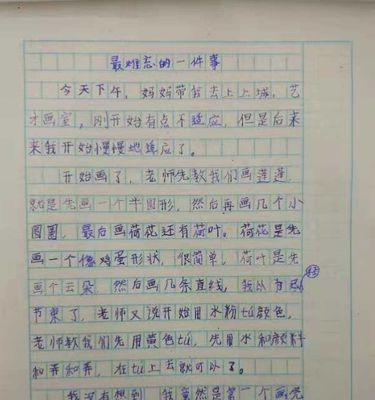 最难忘的一件事
今天下午，妈妈带我去上上城，艺
才画室，刚开始有点不适应，但是后来
来我开始慢慢地适应了。
开始画了，老师先教我们画莲蓬，
就是先画一个半圆形，然后再画几个小
圆圈，最后画荷花还有荷叶。荷花是先
画一个像鸡蛋形状，很简单。荷叶是先
画个云朵，然后画几条直线，我以为
节束了，老师又说开始用水粉tú颜色，
老师教我们先用黄色tú，先用水和颜料
和弄和弄，在tú上去就可以了。
我没有想到，我竟然是第一个画完